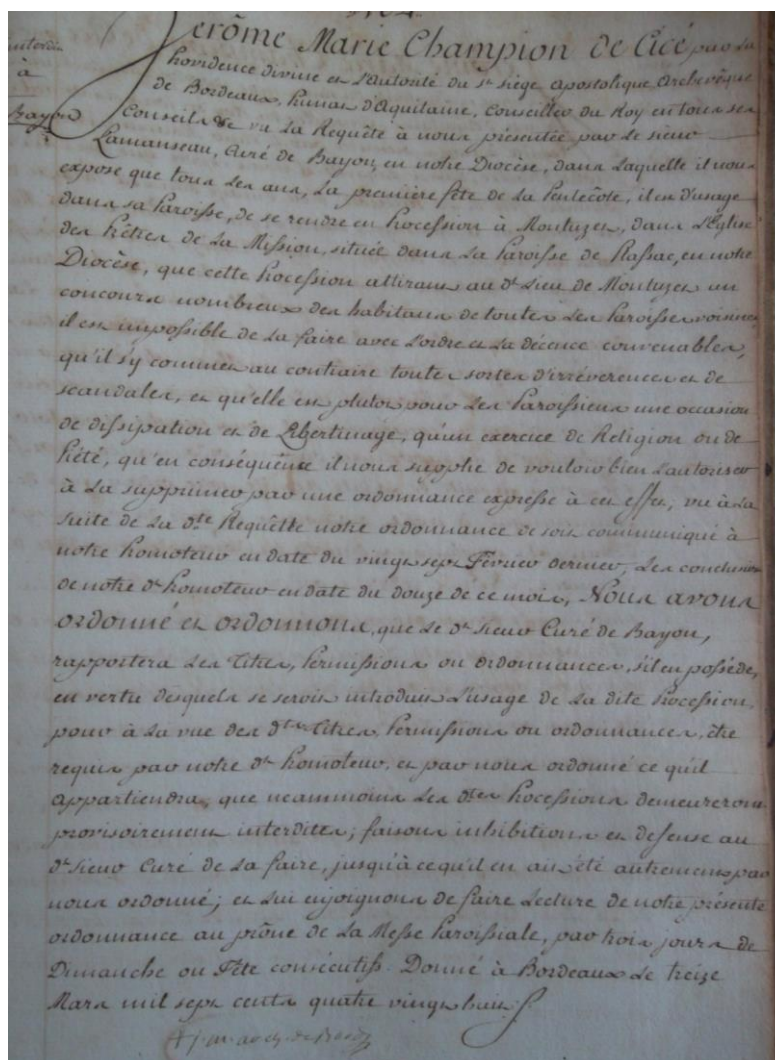 interdite
à
Bayon
Jerôme Marie Champion de Cicé par la
Providence divine et l'autorité du St siège apostolique Archevêque
de Bordeaux, Primat d'Aquitaine, Conseiller du Roy en tous ses
Conseils &c vu la Requête à nous présentée par le sieur
Lamanseau, Curé de Bayon, en notre Diocèse, dans laquelle il nous
expose que tous les ans, la première fête de la Pentecôte, il est d'usage
dans sa Paroisse, de se rendre en Procession à Montuzet, dans l'Eglise
des Prêtres de la Mission, située dans la Paroisse de Plassac, en notre
Diocèse, que cette Procession attirant au dt lieu de Montuzet un
concours nombreux des habitans de toutes les Paroisses voisines,
il est impossible de la faire avec l'ordre et la décence convenables,
qu'il s'y commet au contraire toutes sortes d'irréverences et de
scandales, et qu'elle est plutot pour les Paroissiens une occasion
de dissipation et de Libertinage, qu'un exercice de Religion ou de
Piété, qu'en conséquence il nous supplie de vouloir bien l'autoriser
à la supprimer par une ordonnance expresse à cet effet; vu à la
suite de la dte Requêtte notre ordonnance de soit communiqué à
notre Promoteur en date du vingt sept Février dernier, les conclusions
de notre dt Promoteur en date du douze de ce mois, Nous avons
ordonné et ordonnons, que le dt sieur Curé de Bayon,
rapportera les Titres, Permissions ou ordonnances, s'il en posséde,
en vertu desquels se seroit introduit l'usage de la dite Procession,
pour à la vue des dts Titres, Permissions ou ordonnances, être
requis par notre dt Promoteur, et par nous ordonné ce qu'il
appartiendra, que neammoins les dtes Processions demeureront
provisoirement interdites; faisons inhibitions et defense au
dt sieur Curé de la faire, jusqu'à ce qu'il en ait été autrement par
nous ordonné; et lui enjoignons de faire lecture de notre présente
ordonnance au prône de la Messe Paroissiale, par trois jours de
Dimanche ou Fête consécutifs. Donné à Bordeaux le treize
Mars mil sept cents quatre vingt huit
+ j. m. arch. de Bord.